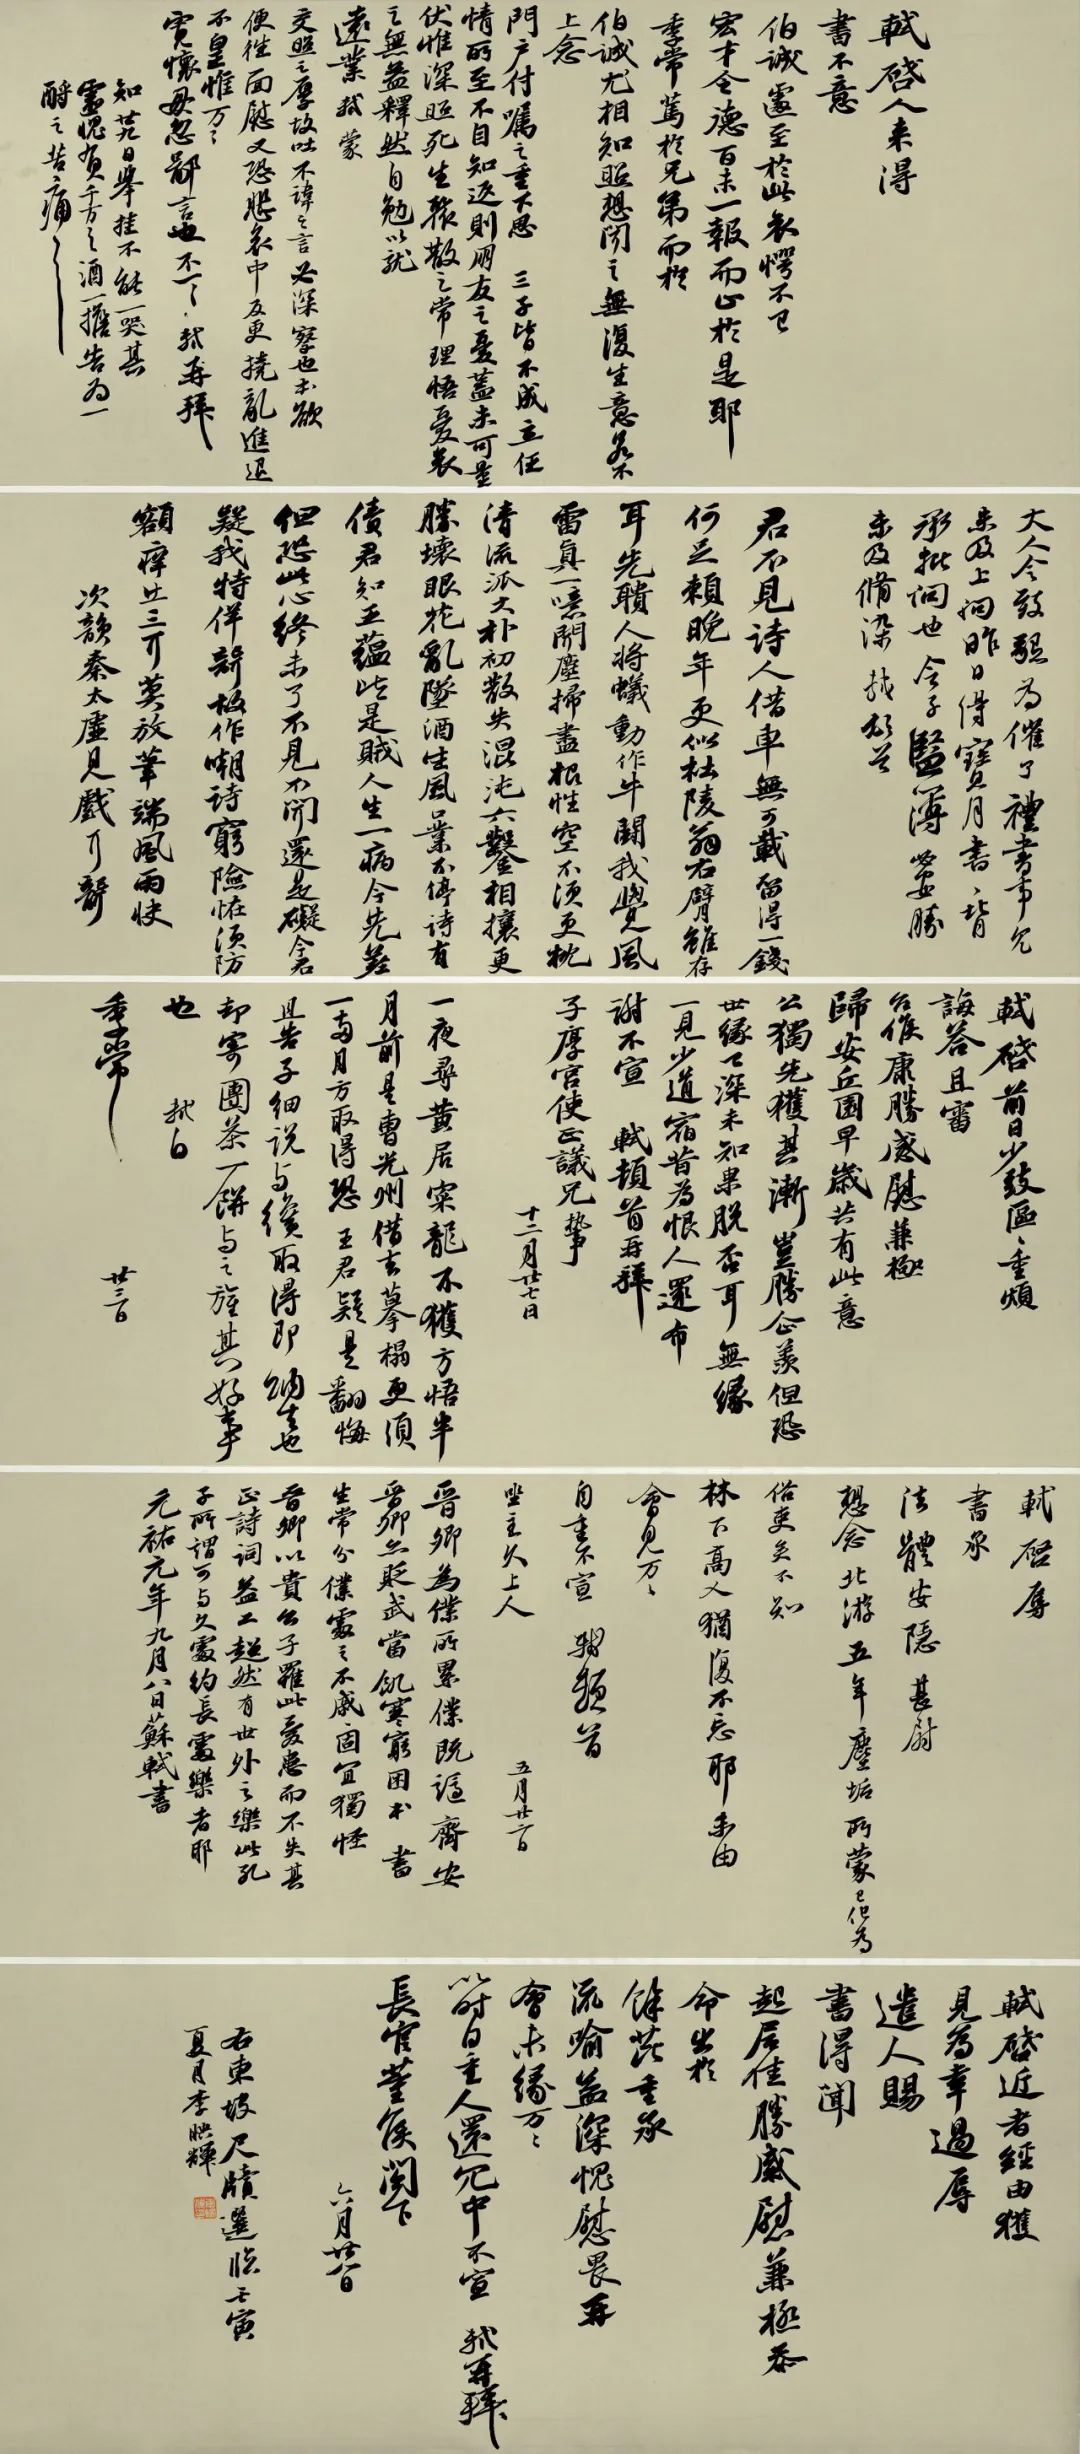 軾啓人来得
書不意
伯誠遽至於此哀愕不已
宏才令德百未一報而止於是耶
季常篤於兄弟而於
伯誠尤相知照想聞之無復生意若不
上念
門户付嘱之重下思三子皆不成立任
情所至不自知返則朋友之憂蓋未可量
伏惟深照死生聚散之常理悟憂哀
之無益釋然自勉以就
遠業軾蒙
交照之厚故吐不諱之言必深察也本欲
便往面慰又恐悲哀中反更撓亂進退
不皇惟万々
寛懷毋忽鄙言也不一々軾再拜
知廿九日舉挂不能一哭其
靈愧負千万々酒一擔告為一
酹之苦痛々
大人令致懇為催了禮書事冗
未及上問昨日得寶月書々背
承批問也令子監簿必安勝
未及修染軾頓首
君不見詩人借車無可載留得一錢
何足賴晚年更似杜陵翁右臂雖存
耳先聵人將蟻動作牛鬭我覺風
雷真一噫聞塵掃盡根性空不須更枕
清流派大朴初散失混沌六鑿相攘更
勝壞眼花亂墜酒生風口業不停詩有
債君知五蘊皆是賊人生一病今先差
但恐此心終未了不見不聞還是礙今君
疑我特佯聾故作嘲詩窮險怪須防
額癢出三耳莫放筆端風雨快
次韻秦太虛見戲耳聾
軾啓前日少致區々重煩
誨答且審
台候康勝感慰兼極
歸安丘園早歲共有此意
公獨先獲其漸豈勝企羨但恐
世緣已深未知果脱否耳無緣
一見少道宿昔為恨人還布
謝不宣軾頓首再拜
子厚宫使正議兄執事
十二月廿七日
一夜尋黄居寀龍不獲方悟半
月前是曹光州借去摹榻更須
一两月方取得恐王君疑是翻悔
且告子細説与纔取得即納去也
却寄團茶一餅与之旌其好事
也軾白
季常
廿三日
軾啓辱
書承
法體安隱甚慰
想念北游五年塵垢所蒙已化為
俗吏矣不知
林下高人猶復不忘耶未由
會見万々
自重不宣軾頓首
坐主久上人
五月廿二日
晉卿為僕所累僕既謫齊安
晉卿亦貶武當飢寒窮困本書
生常分僕處之不戚固宜獨怪
晉卿以貴公子罹此憂患而不失其
正詩詞益工超然有世外之樂此孔
子所謂可与久處約長處樂者耶
元祐元年九月八日蘇軾書
軾啓近者經由獲
見為幸過辱
遣人賜
書得聞
起居佳勝感慰兼極忝
命出於
餘芘重承
流喻益深愧慰畏再
會未緣万々
以時自重人還冗中不宣軾再拜
長官董侯閣下
六月廿八日
右東坡尺牘選臨壬寅
夏月李映輝